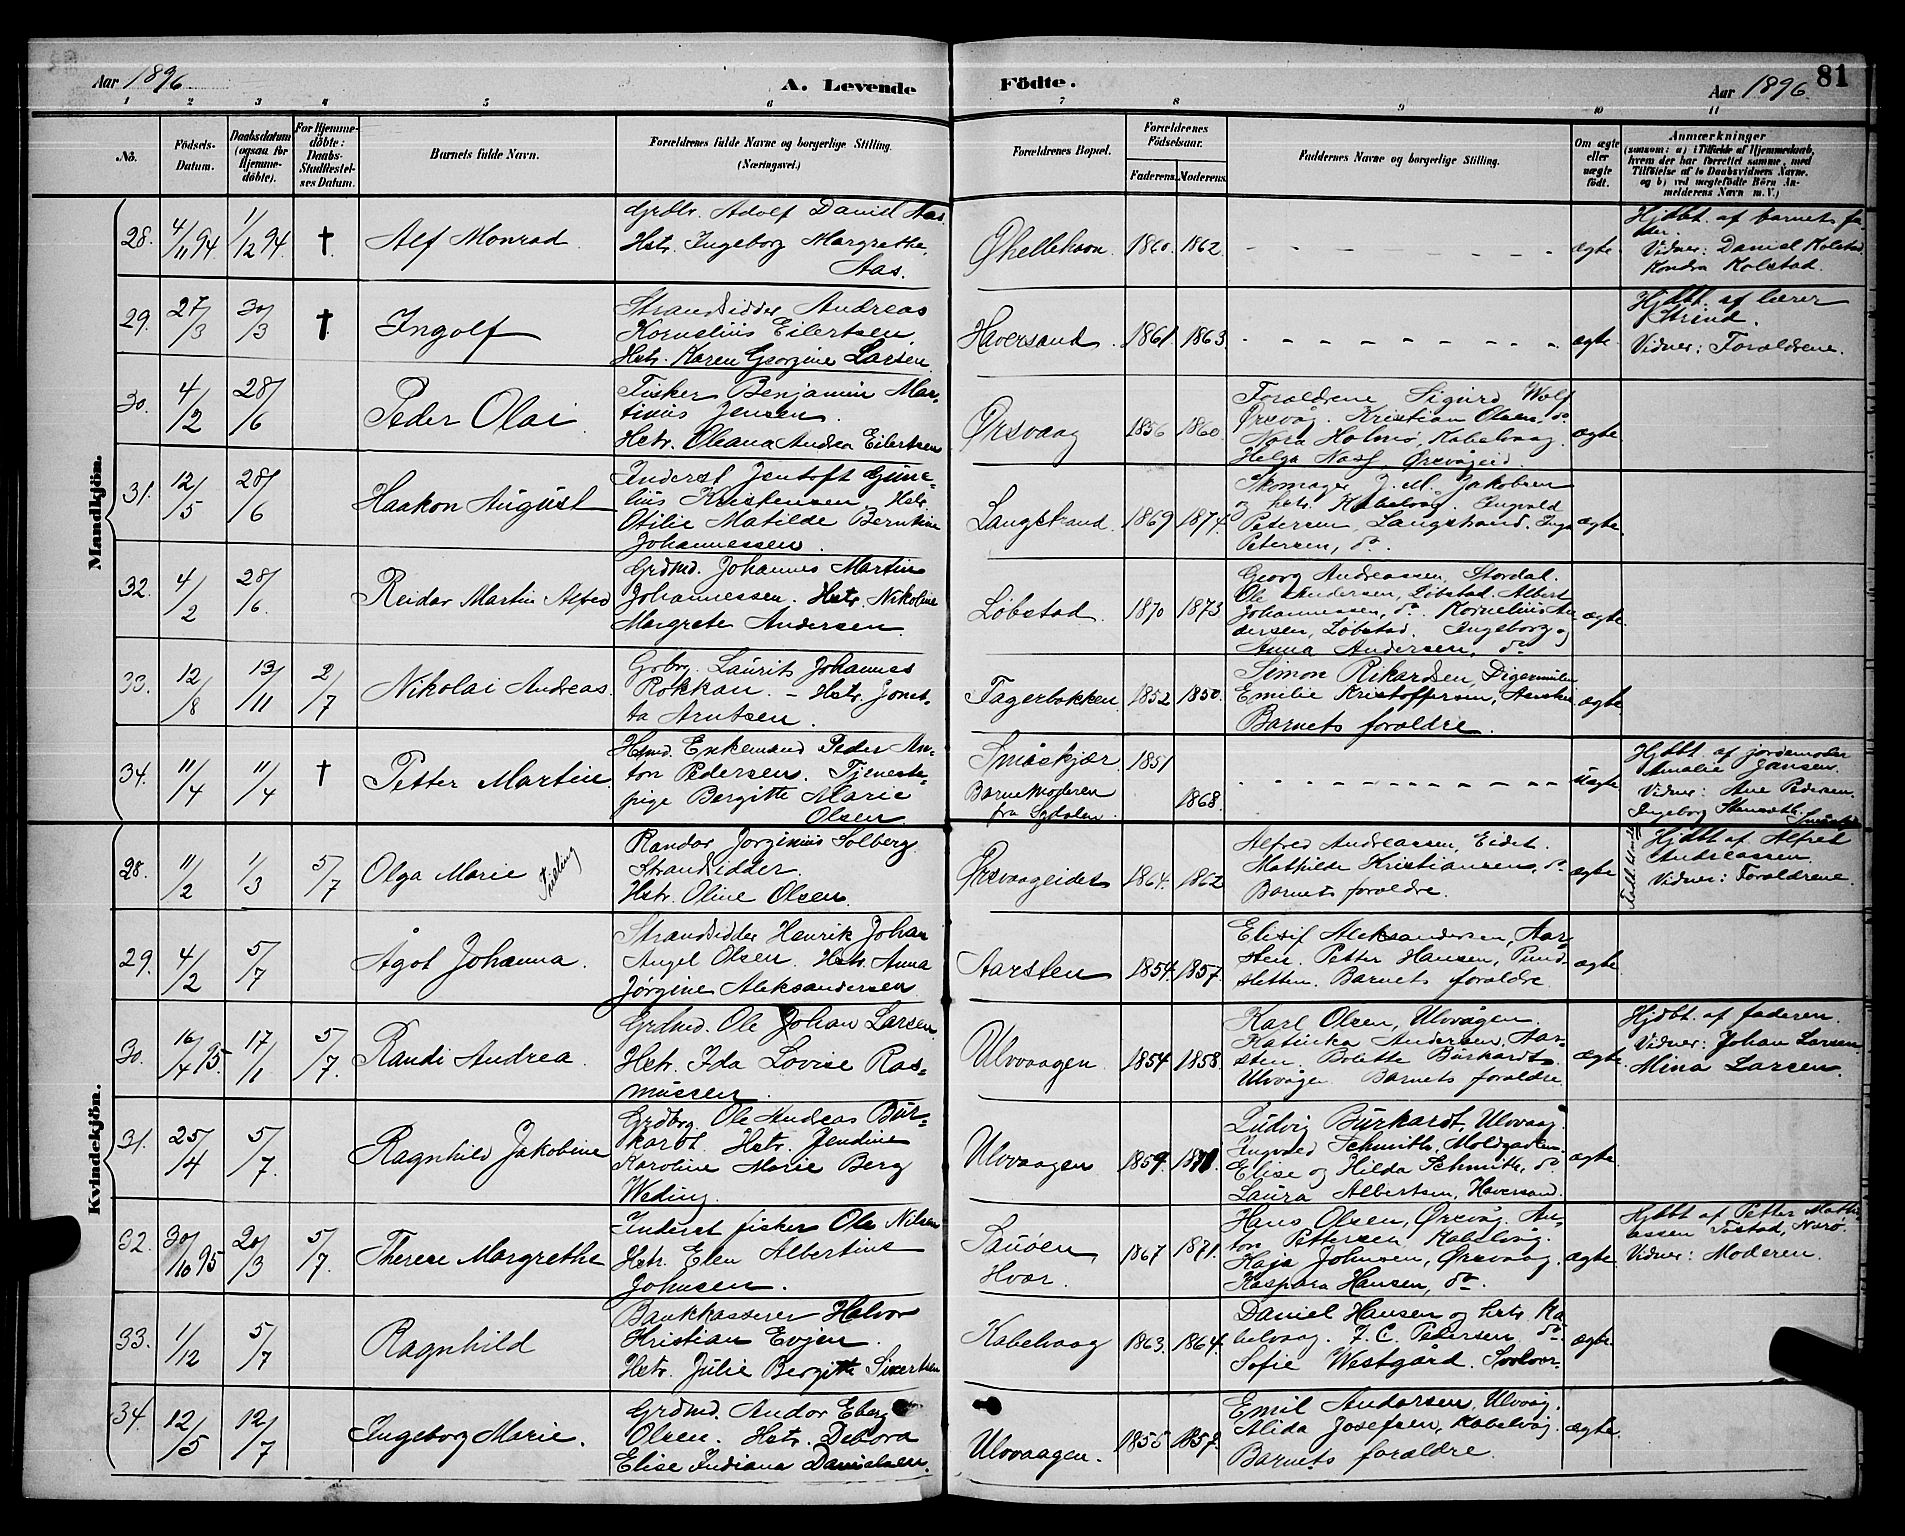 Aar 1896
A. Levende Födte.
Aar 1896.
81
1 2 3 4 5 6 7 8 9 10 11
No.
Födsels-Datum.
Daabsdatum (ogsaa for Hjemmedöbte).
For Hjemmedöbte: Daabs-Stadfæstelses Datum.
Barnets fulde Navn.
Forældrenes fulde Navne og borgerlige Stilling. (Næringsvei.)
Forældrenes Bopæl.
Forældrenes Födselsaar.
Faderens. Moderens.
Faddernes Navne og borgerlige Stilling.
Om ægte eller uægte födt.
Anmærkninger
(saasom: a) i Tilfælde af Hjemmedaab, hvem der har forrettet samme, med Tilföielse af to Daabsvidners Navne. og b) ved uægtefödte Börn Anmelderens Navn m. V.)
Mandkjön.
28. 4/11 94 1/12 94 † Alf Monrad
Grdbr. Adolf Daniel Aas.
Hstr. Ingeborg Margrethe
Aas.
1860. 1862. ægte
Hjdbt. af barnets fader.
Vidner: Daniel Kolstad
Kondra Kolstad.
29. 27/3 30/3 † Ingolf
Strandsidder Andreas
Kornelius Eilertsen
Hstr. Karen Georgine Larsen.
Haversand. 1861 1863. ægte
Hjdbt. af lærer
Strind.
Vidner: Forældrene.
30. 4/2 28/6 Peder Olai
Fisker Benjamin Martinus
Jensen.
Hstr. Oleana Andrea Eilertsen
Ørsvaag 1856 1860.
Forældrene Sigurd Wolf
Ørsvåg. Kristian Olsen, do
Nora Holmø, Kabelvaag.
Helga Nass, Ørsvågeid. ægte
31. 12/5 28/6 Haakon August
Inderst Jentoft
Kristensen Hstr
Otilie Matilde Berntine
Johannessen.
Langstrand 1869 1874.
Skomager J. M. Jakobsen
og hstr. Kabelvåg. Ingvald
Petersen, Langstrand, Inga
Petersen, do. ægte
32. 4/2 28/6. Reidar Martin Alfred
Grdmd. Johannes Martin
Johannessen. Hstr. Nikoline
Margrete Andersen.
Løbstad. 1870 1873
Georg Andreassen, Stordal.
Ole Andersen, Løbstad. Albert
Johannessen, do. Kornelius Andersen,
Løbstad. Ingeborg og
Anna Andersen, do ægte.
33. 12/8 13/11 2/7 Nikolai Andreas
Gbrg. Laurits Johannes
Rokkan. – Hstr. Jonetta
Arntsen.
Fagerbakken 1852 1850.
Simon Rikardsen, Digermulen
Emilie Kristoffersen,
Barnets forældre. ægte
34. 11/4 11/4 † Petter Martin
Hsmd. Enkemand Peder Anton
Pedersen. Tjenestepige
Bergitte Marie
Olsen
Småskjær 1851
Barnemoderen 1868.
fra Sydalen. uægte
Hjdbt. af jordemoder
Amalie Jansen.
Vidner: Ane Pedersen.
Ingeborg
Kvindekjön.
28. 11/2 1/3 5/7 Olga Marie Tvilling
Randor Jørginius Solberg.
Strandsidder.
Hstr. Oline Olsen.
Ørsvaageidet 1864. 1862
Alfred Andreassen, Eidet.
Mathilde Kristiansen, do
Barnets forældre. ægte
Hjdbt. af Alfred
Andreassen.
Vidner: Forældrene.
29. 4/2 5/7 Ågot Johanna.
Strandsidder Henrik Johan
Angel Olsen. Hstr. Anna
Jørgine Aleksandersen
Aarsten 1854. 1857.
Elisif Aleksandersen, Aarsten.
Petter Hansen, Pundsletten.
Barnets forældre. ægte
30. 16/4 95. 17/1 5/7. Randi Andrea.
Grdmd. Ole Johan Larsen.
Hstr. Ida Lovise Rasmussen
Ulvaagen 1854 1858.
Karl Olsen, Ulvågen.
Katinka Andersen, Aarsten.
Bolette Burkardt
Ulvågen Barnets forældre. ægte
Hjdbt. af faderen.
Vidner: Johan Larsen.
Mina Larsen.
31. 25/4 5/7. Ragnhild Jakobine
Grdbrg. Ole Andreas Burkardt.
Hstr. Jendine
Karoline Marie Berg
Weding.
Ulvaagen 1859.
Ludvig Burkardt, Ulvvaag.
Ingvald Schmith, Moldgaden
Elise og Hilda Schmith, do
Laura Albertsen, Haversand. ægte
32. 30/10 95 20/3 5/7. Therese Margrethe
Inderst fisker Ole Nilsen
Hstr. Elen Albertine
Johnsen.
1867 1871.
Hans Olsen, Ørsvåg. Anton
Pettersen, Kabelvåg.
Kaja Johnsen, Ørsvaag.
Kaspara Hansen, do. ægte
Hjdbt. af Petter
Vidner: Moderen.
33. 1/12 5/7 Ragnhild
Bankkasserer Halvor
Kristian Evjen.
Hstr. Julie Bergitte Sivertsen
Kabelvaag 1863. 1864.
Daniel Hansen og hstr. Kabelvaag.
J. C. Pedersen, do.
Sofie Westgård. Svolvær. ægte
34. 12/5 12/7 Ingeborg Marie.
Grdmd. Andor Eberg
Olsen. Hstr. Debora
Elise Indiana Danielsen.
Ulvaagen. 1855 1857.
Emil Andersen, Ulvvåg.
Alida Josefsen, Kabelvåg.
Barnets forældre. ægte.